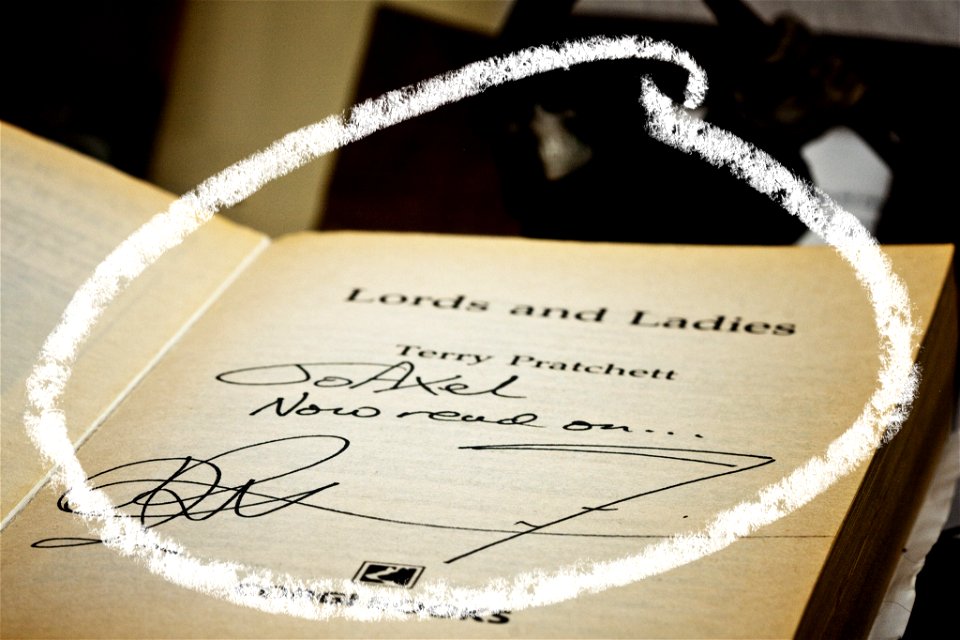 Lords and Ladies
Terry Pratchett
To Axel
Now read on....
CORGI BOOKS